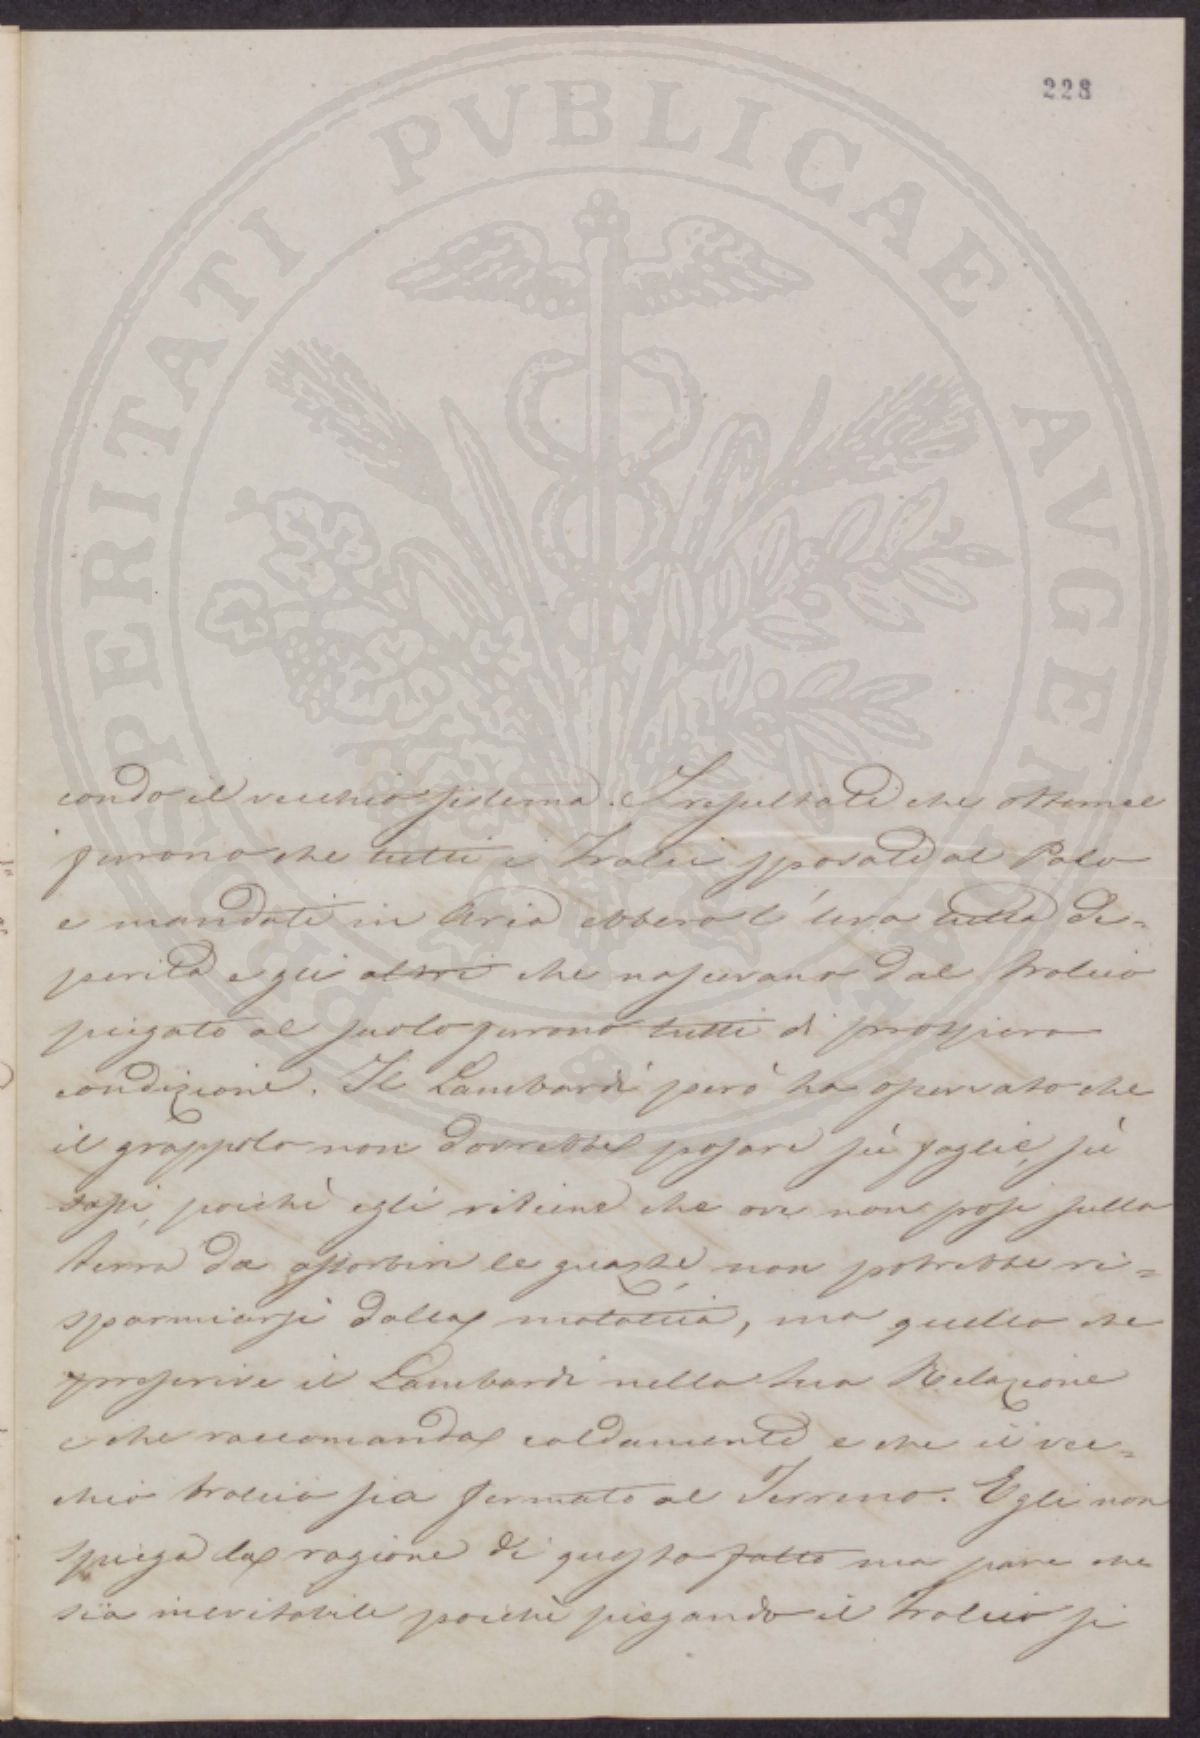 228
PROSPERITATI PVBLICAE AVGENDAE
condo il vecchio sistema. I resultati che ottenne
furono che tutti i Tralci sposati al Palo
e mandati in Aria ebbero l'uva tutta de-
perita e gli altri che nascevano dal tralcio
piegato al suolo furono tutti di prospera
condizione. Il Lambardi però ha osservato che
il grappolo non dovrebbe posare sù foglie, sù
sassi, poichè egli ritiene che ove non posi sulla
terra da assorbire le guazze, non potrebbe ri-
sparmiarsi dalla malattia, ma quello che
prescrive il Lambardi nella sua Relazione
e che raccomanda caldamente e che il vec-
chio tralcio sia fermato al Terreno. Egli non
spiega la ragione di questo fatto ma pare che
sia inevitabile poichè piegando il Tralcio si